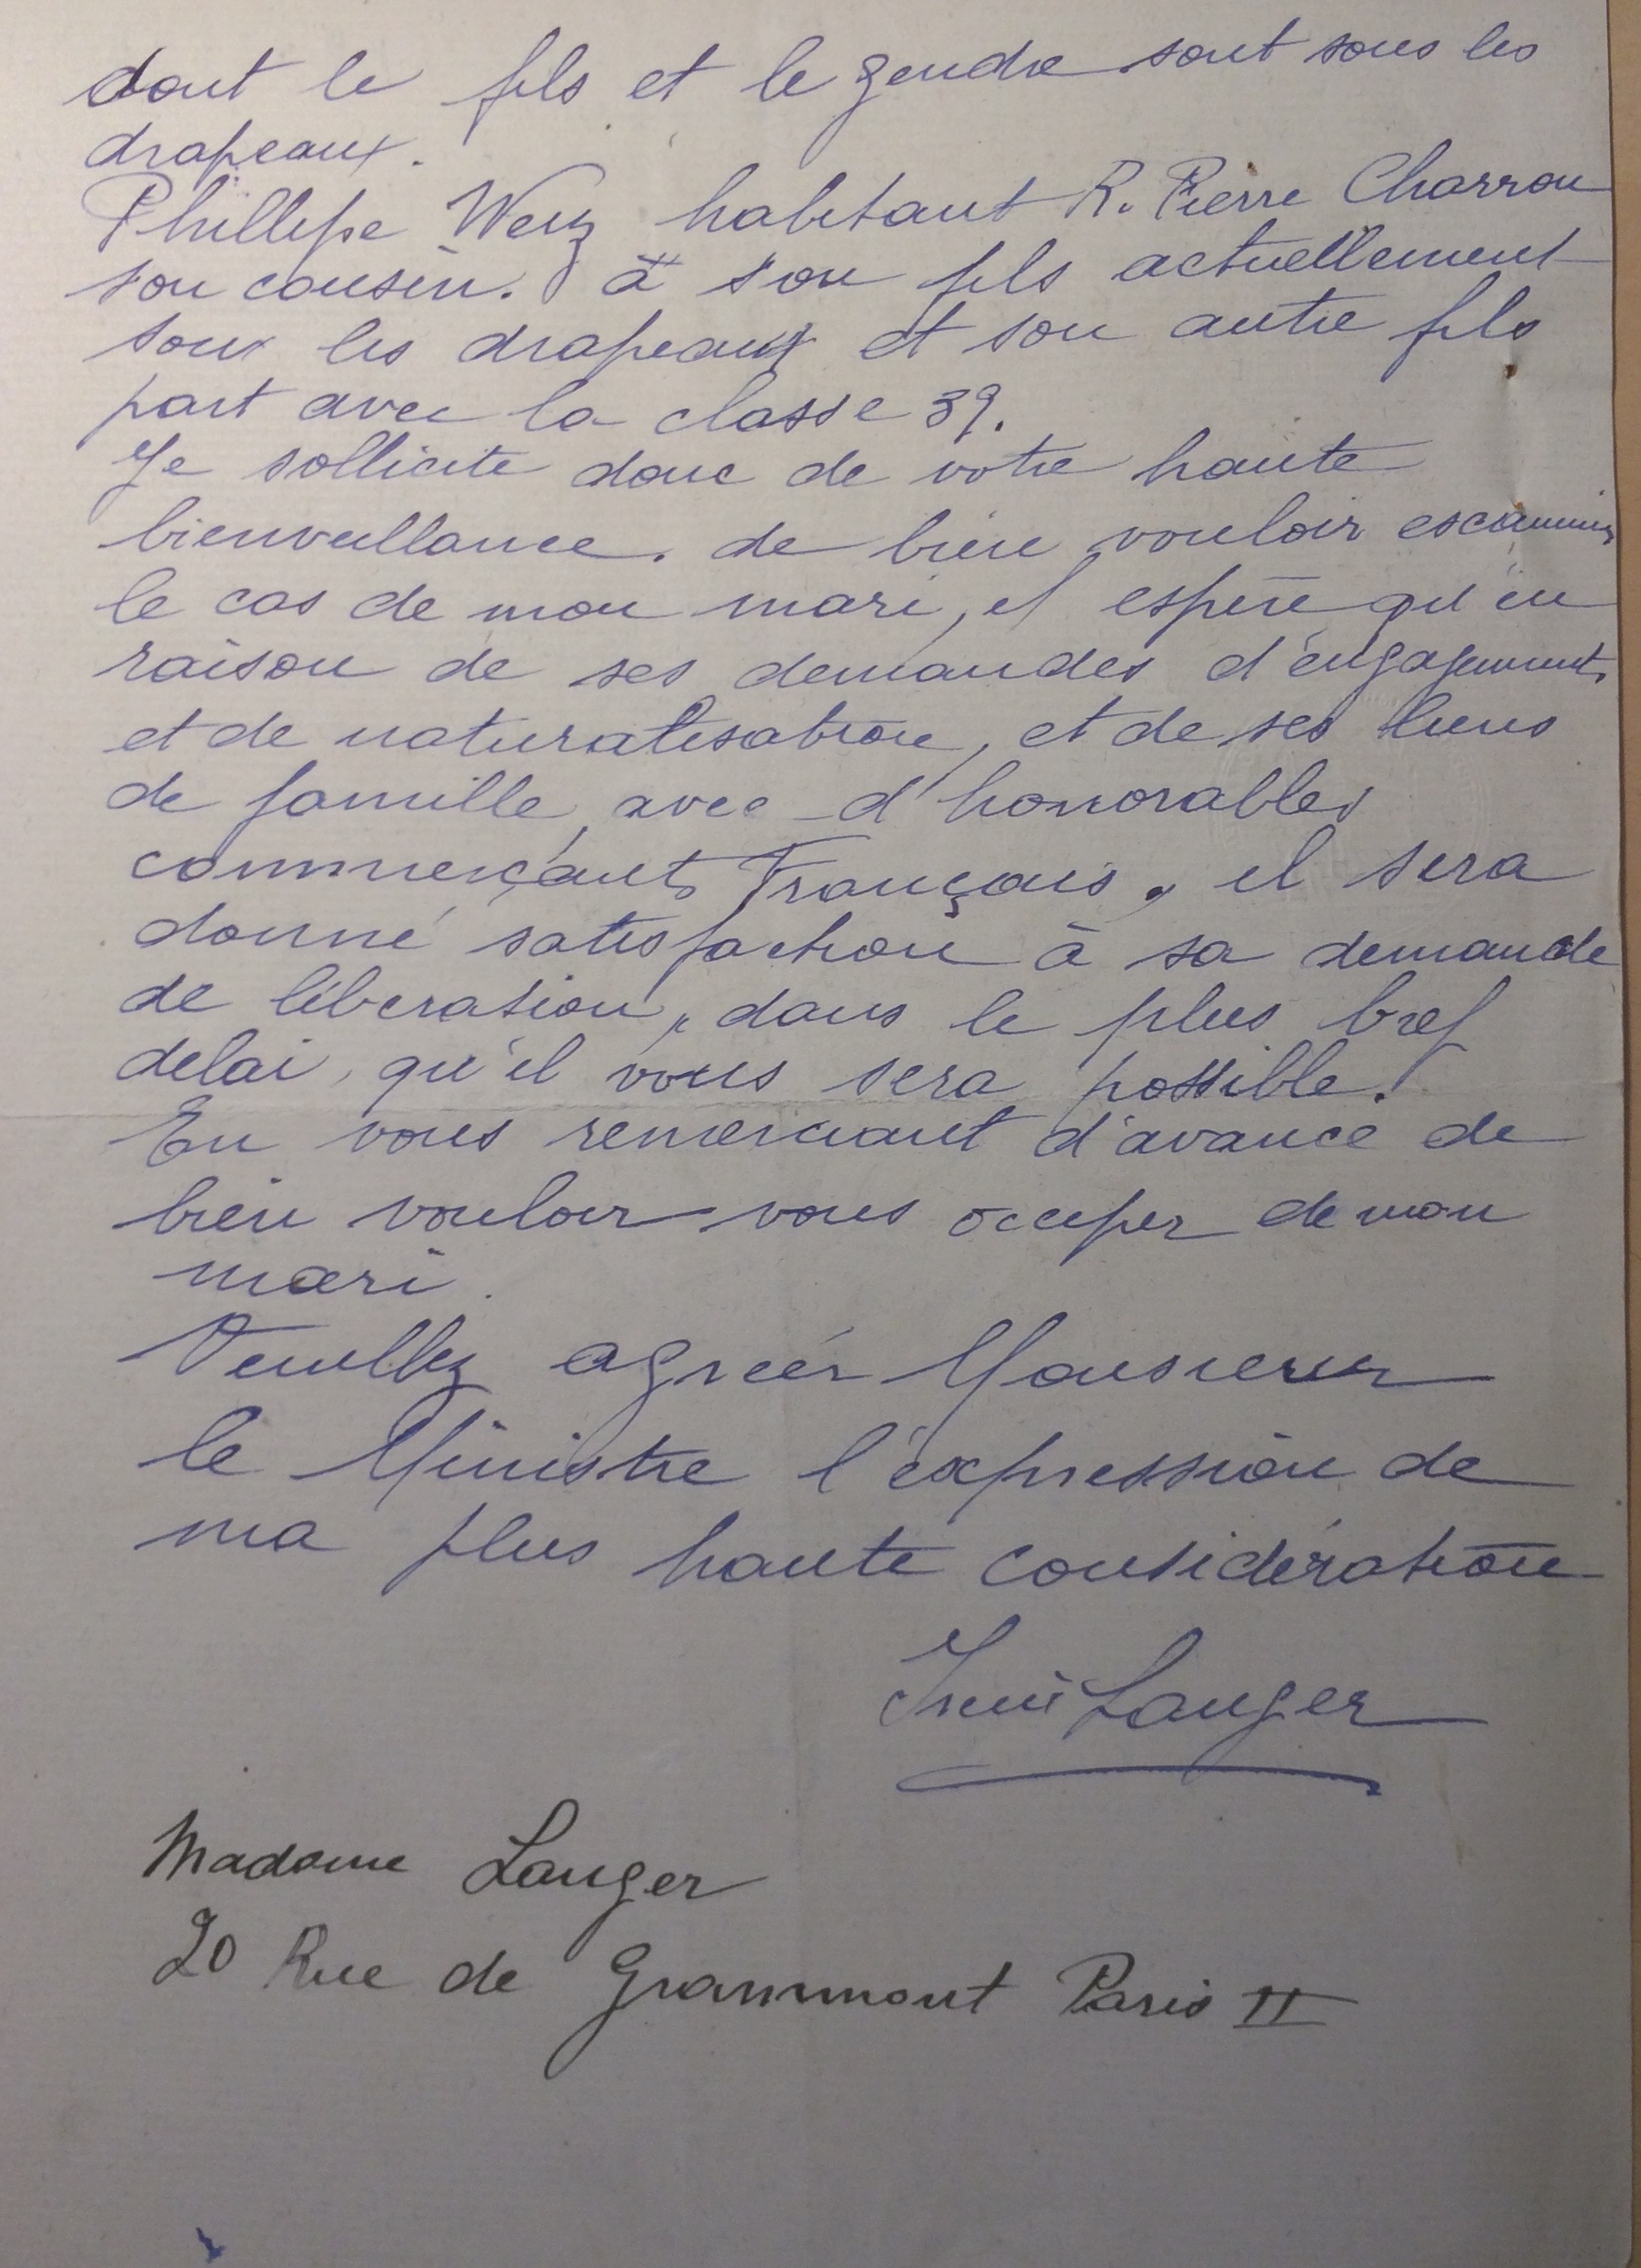 dont le fils et le gendre sont sous les
drapeaux.
Phillipe Weiz habitant R. Pierre Charron
son cousin. à son fils actuellement
sous les drapeaux et son autre fils
part avec la classe 39.
Je sollicite donc de votre haute
bienveillance. de bien vouloir escaminer
le cas de mon mari, il espère qu'en
raison de ses demandes d'engagements
et de naturalisation, et de ses liens
de famille, avec d'honorables
commerçants Français, il sera
donné satisfaction à sa demande
de libération, dans le plus bref
delai, qu'il vous sera possible.
En vous remerciant d'avance de
bien vouloir vous occuper de mon
mari.
Veuillez agréér Monsieur
le Ministre l'expression de
ma plus haute considération
Langer
Madame Langer
20 Rue de Grammont Paris II